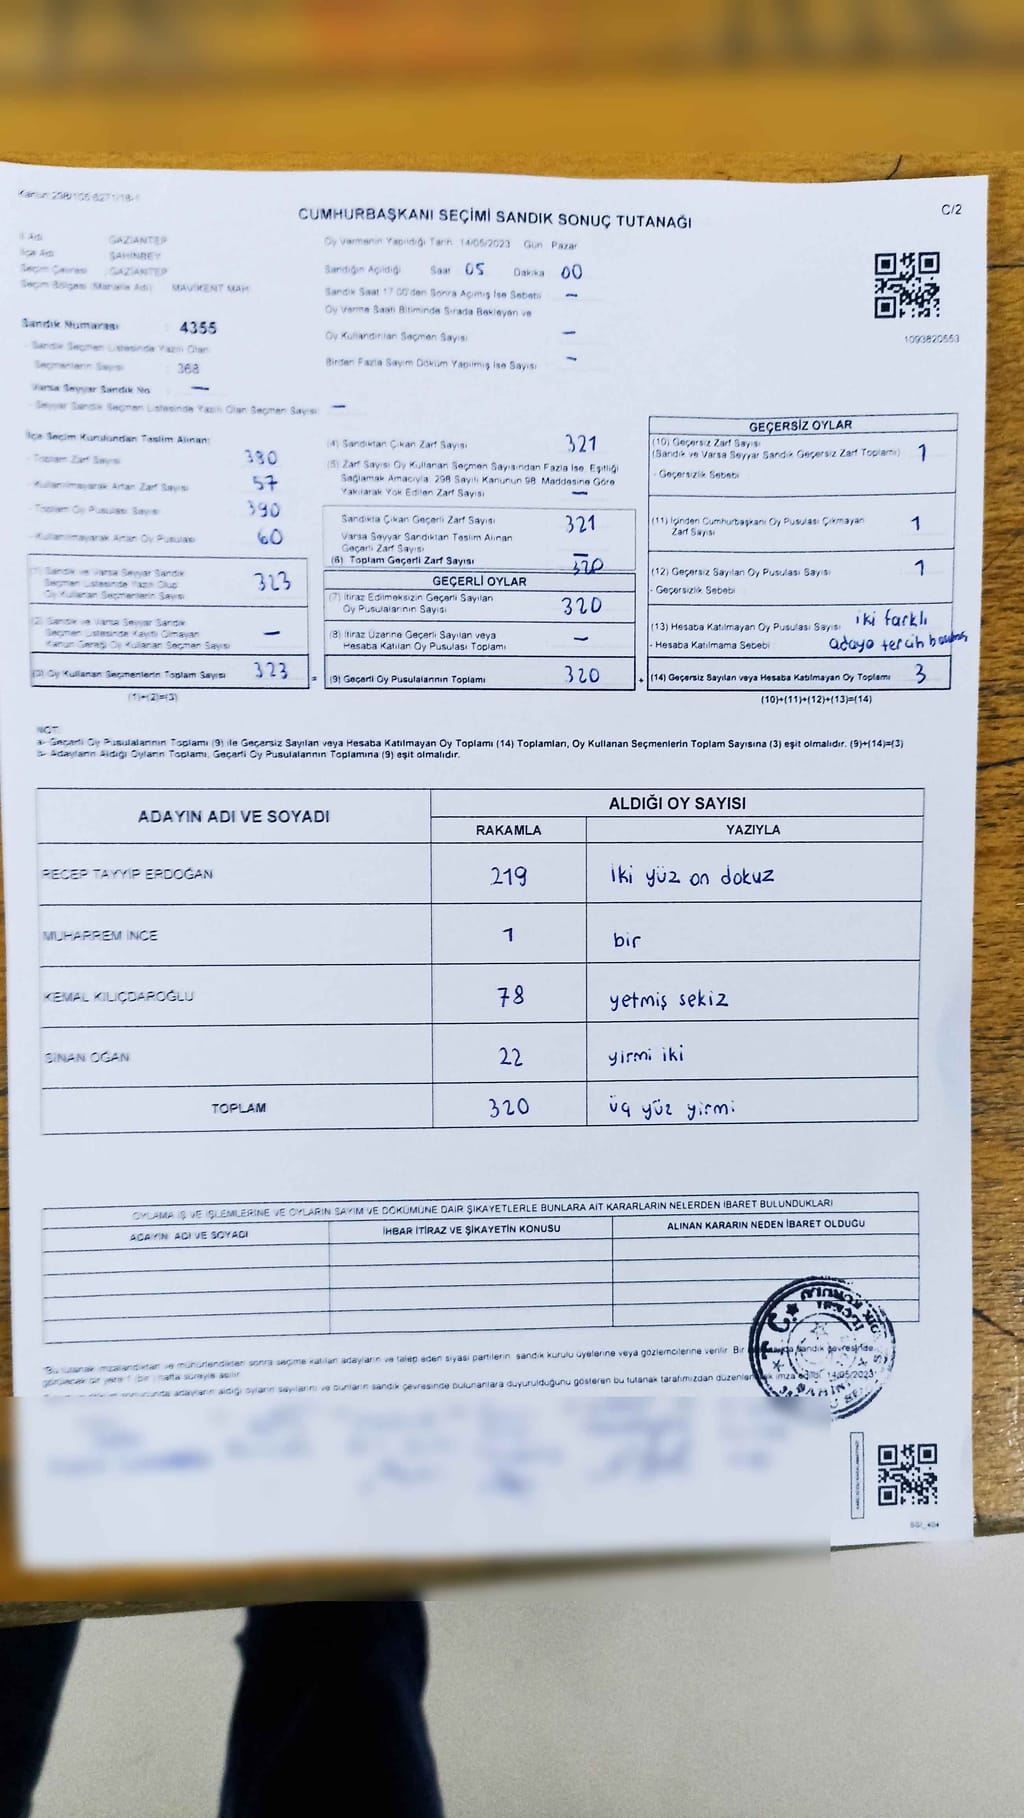 Kanun:298/105 6271/18-1
C/2
CUMHURBAŞKANI SEÇİMİ SANDIK SONUÇ TUTANAĞI
İl Adı GAZİANTEP
İlçe Adı ŞAHİNBEY
Seçim Çevresi :GAZİANTEP
Seçim Bölgesi (Mahalle Adı) MAVİKENT MAH
Sandık Numarası : 4355
- Sandık Seçmen Listesinde Yazılı Olan
Seçmenlerin Sayısı : 368
Varsa Seyyar Sandık No —
- Seyyar Sandık Seçmen Listesinde Yazılı Olan Seçmen Sayısı —
Oy Vermenin Yapıldığı Tarih: 14/05/2023 Gün Pazar
Sandığın Açıldığı Saat 05 Dakika 00
Sandık Saat 17.00'den Sonra Açılmış İse Sebebi —
Oy Verme Saati Bitiminde Sırada Bekleyen ve
Oy Kullandırılan Seçmen Sayısı —
Birden Fazla Sayım Döküm Yapılmış İse Sayısı —
1093820553
İlçe Seçim Kurulundan Teslim Alınan:
- Toplam Zarf Sayısı 380
- Kullanılmayarak Artan Zarf Sayısı 57
- Toplam Oy Pusulası Sayısı 390
- Kullanılmayarak Artan Oy Pusulası 60
(1) Sandık ve Varsa Seyyar Sandık
Seçmen Listesinde Yazılı Olup
Oy Kullanan Seçmenlerin Sayısı 323
(2) Sandık ve Varsa Seyyar Sandık
Seçmen Listesinde Kayıtlı Olmayan
Kanun Gereği Oy Kullanan Seçmen Sayısı —
(3) Oy Kullanan Seçmenlerin Toplam Sayısı 323
(1)+(2)=(3)
(4) Sandıktan Çıkan Zarf Sayısı 321
(5) Zarf Sayısı Oy Kullanan Seçmen Sayısından Fazla İse, Eşitliği
Sağlamak Amacıyla, 298 Sayılı Kanunun 98. Maddesine Göre
Yakılarak Yok Edilen Zarf Sayısı —
Sandıkta Çıkan Geçerli Zarf Sayısı 321
Varsa Seyyar Sandıktan Teslim Alınan
Geçerli Zarf Sayısı —
(6) Toplam Geçerli Zarf Sayısı 320
GEÇERLİ OYLAR
(7) İtiraz Edilmeksizin Geçerli Sayılan
Oy Pusulalarının Sayısı 320
(8) İtiraz Üzerine Geçerli Sayılan veya
Hesaba Katılan Oy Pusulası Toplamı —
= (9) Geçerli Oy Pusulalarının Toplamı 320 +
GEÇERSİZ OYLAR
(10) Geçersiz Zarf Sayısı
(Sandık ve Varsa Seyyar Sandık Geçersiz Zarf Toplamı) 1
- Geçersizlik Sebebi
(11) İçinden Cumhurbaşkanı Oy Pusulası Çıkmayan
Zarf Sayısı 1
(12) Geçersiz Sayılan Oy Pusulası Sayısı 1
- Geçersizlik Sebebi
(13) Hesaba Katılmayan Oy Pusulası Sayısı iki farklı
- Hesaba Katılmama Sebebi adaya tercih
(14) Geçersiz Sayılan veya Hesaba Katılmayan Oy Toplamı 3
(10)+(11)+(12)+(13)=(14)
NOT:
a- Geçerli Oy Pusulalarının Toplamı (9) ile Geçersiz Sayılan veya Hesaba Katılmayan Oy Toplamı (14) Toplamları, Oy Kullanan Seçmenlerin Toplam Sayısına (3) eşit olmalıdır. (9)+(14)=(3)
b- Adayların Aldığı Oyların Toplamı, Geçerli Oy Pusulalarının Toplamına (9) eşit olmalıdır.
ADAYIN ADI VE SOYADI ALDIĞI OY SAYISI
RAKAMLA YAZIYLA
RECEP TAYYİP ERDOĞAN 219 İki yüz on dokuz
MUHARREM İNCE 1 bir
KEMAL KILIÇDAROĞLU 78 yetmiş sekiz
SİNAN OĞAN 22 yirmi iki
TOPLAM 320 üç yüz yirmi
OYLAMA İŞ VE İŞLEMLERİNE VE OYLARIN SAYIM VE DÖKÜMÜNE DAİR ŞİKAYETLERLE BUNLARA AİT KARARLARIN NELERDEN İBARET BULUNDUKLARI
ADAYIN ADI VE SOYADI İHBAR İTİRAZ VE ŞİKAYETİN KONUSU ALINAN KARARIN NEDEN İBARET OLDUĞU
*Bu tutanak imzalandıktan ve mühürlendikten sonra seçime katılan adayların ve talep eden siyasi partilerin, sandık kurulu üyelerine veya gözlemcilerine verilir. Bir sandık çevresinde
görülecek bir yere 1 (bir) hafta süreyle asılır.
adayların aldığı oyların sayılarını ve bunların sandık çevresinde bulunanlara duyurulduğunu gösteren bu tutanak tarafımızdan imza edildi. 14/05/2023
T.C.